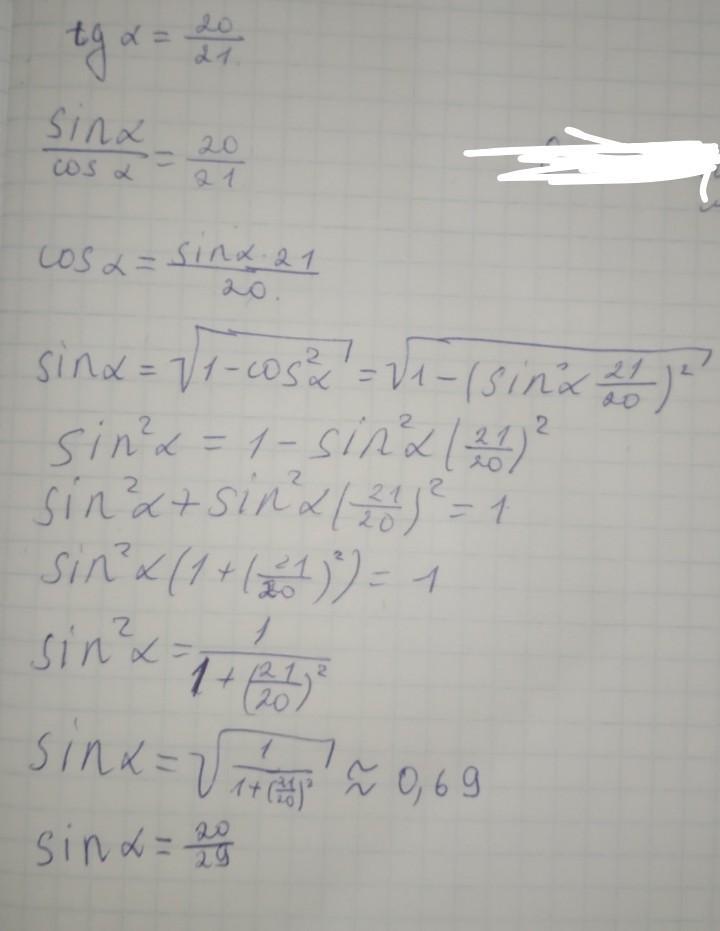 tg α = 20/21
sin α / cos α = 20/21
cos α = sin α · 21 / 20.
sin α = √(1 - cos²α) = √(1 - (sin²α 21/20)²)
sin²α = 1 - sin²α (21/20)²
sin²α + sin²α (21/20)² = 1
sin²α (1 + (21/20)²) = 1
sin²α = 1 / (1 + (21/20)²)
sin α = √(1 / (1 + (21/20)²)) ≈ 0,69
sin α = 20/29